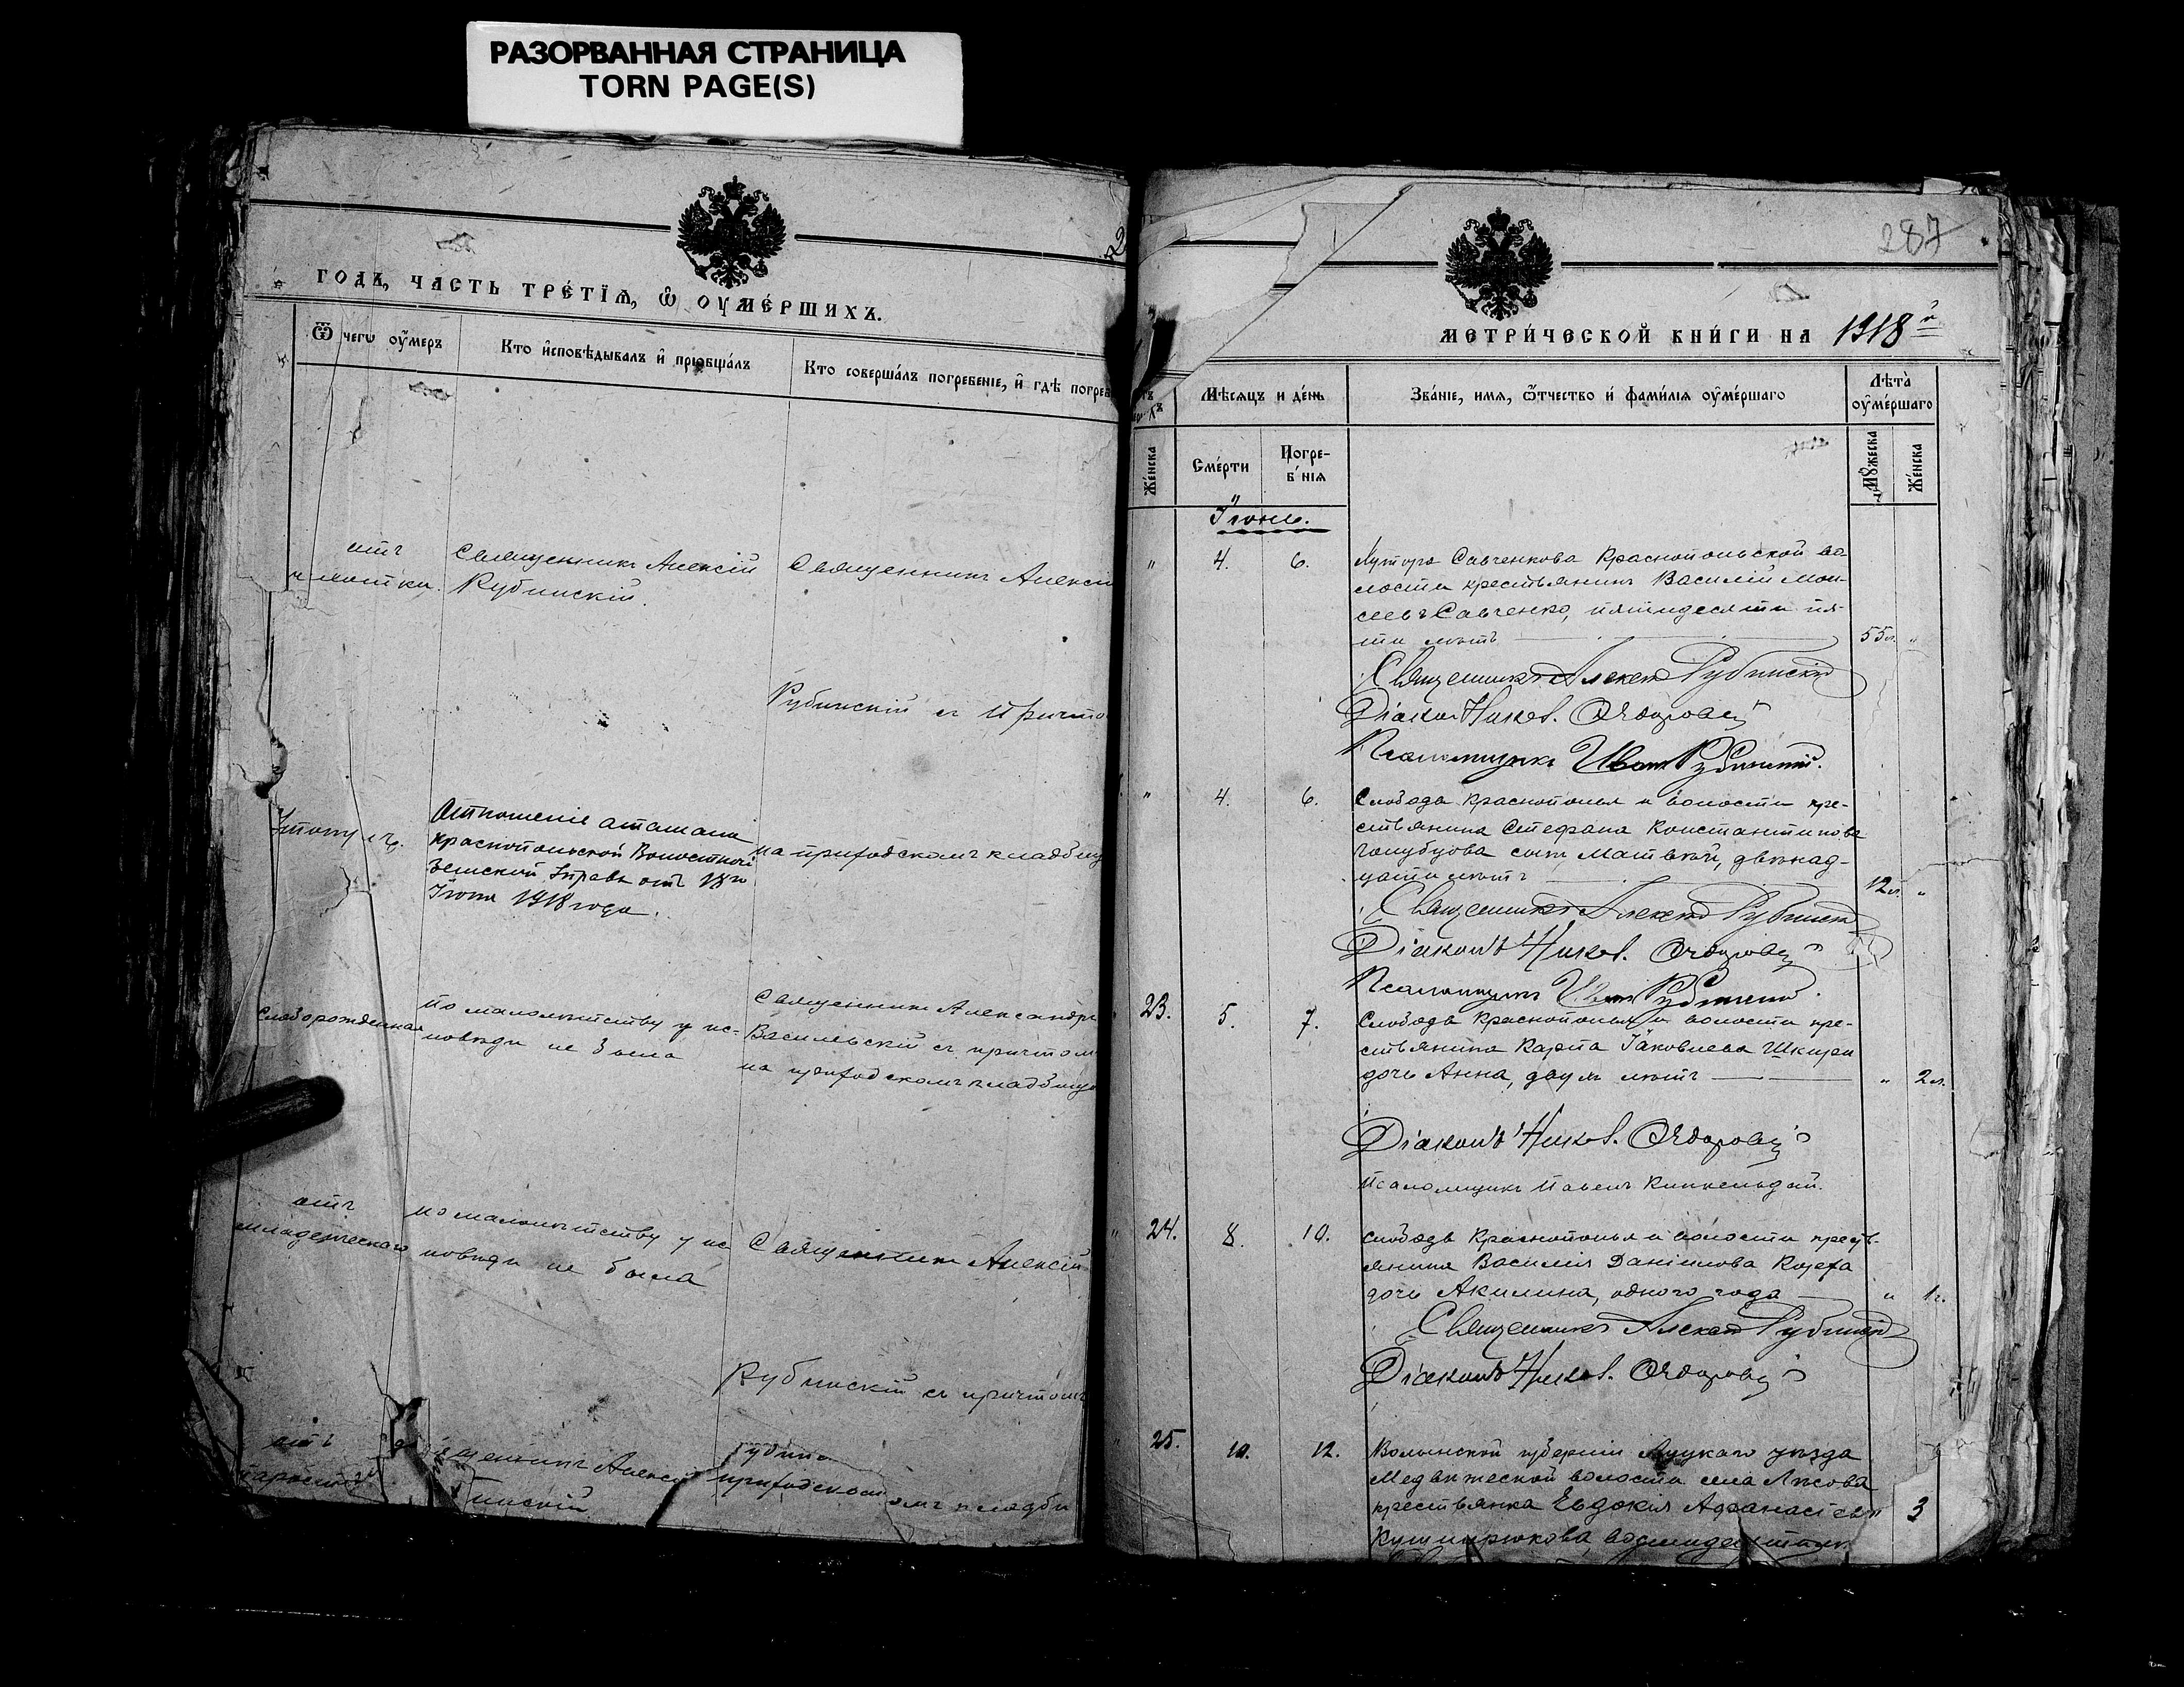 РАЗОРВАННАЯ СТРАНИЦА
TORN PAGE(S)
ГОДЪ, ЧАСТЬ ТРЕ́ТЇѦ, Ѽ ОУМЕ́РШИХЪ.
Ѿ чегѡ оумеръ
Кто исповѣдывалъ и прїѡбщалъ
Кто совершалъ погребенїе, и гдѣ погреб
отъ
Священникъ Алексій
Рубинскій.
Священникъ Алексі
Рубинскій съ Причто
Утонулъ.
Отношеніе атамана
Краснопольской Волостной
Земской Управы отъ 18го
Іюня 1918 года.
на приходскомъ кладбищ
Слаборожденная
По малолѣтству у ис-
повѣди не была
Священникъ Александръ
Василевскій съ причтом
на приходскомъ кладбище
отъ
младенческаго
по малолѣтству у ис
повѣди не была
Священникъ Алексій
Рубинскій съ причтомъ
отъ
Алексі
инскій
приходском
омъ кладби
287
МЕТРИ́ЧЕСКОЙ КНИ́ГИ НА 1918 й
Мѣсяцъ и де́нь
Зва́нїе, имя, ѿтчество и фами́лїя оуме́ршаго
Лѣта̀ оуме́ршаго
Же́нска
Сме́рти
Погре-
б нїя
Мꙋжеска
Же́нска
Іюнь.
" 4. 6. Хутора Савченкова Краснопольской во-
лости крестьянинъ Василій Мои-
сеевъ Савченко, пятидесяти пя-
ти лѣтъ 55л. "
Священникъ Алексій Рубинскій
Діаконъ Никол. Ѳедоровъ
Псаломщикъ Иванъ Рубинскій.
" 4. 6. Слободы Краснополья и волости кре-
стьянина Стефана Константинова
Голубцова сынъ Матвѣй, двѣнад-
цати лѣтъ 12л. "
Священникъ Алексій Рубинскій
Діаконъ Никол. Ѳедоровъ
Псаломщикъ Иванъ Рубинскій.
23. 5. 7. Слободы Краснополья и волости кре-
стьянина Карпа Іаковлева Шкиря
дочь Анна, двухъ лѣтъ " 2л.
Діаконъ Никол. Ѳедоровъ
Псаломщикъ Павелъ
24. 8. 10. Слободы Краснополья и волости крест-
янина Василія Даніилова
дочь Акилина, одного года " 1г.
Священникъ Алексій Рубинскій
Діаконъ Никол. Ѳедоровъ
25. 10. 12. Волынской губерніи Луцкаго уѣзда
Медвѣжеской волости села Лисова
крестьянка Евдокія Афанасіева
Кушнирюкова